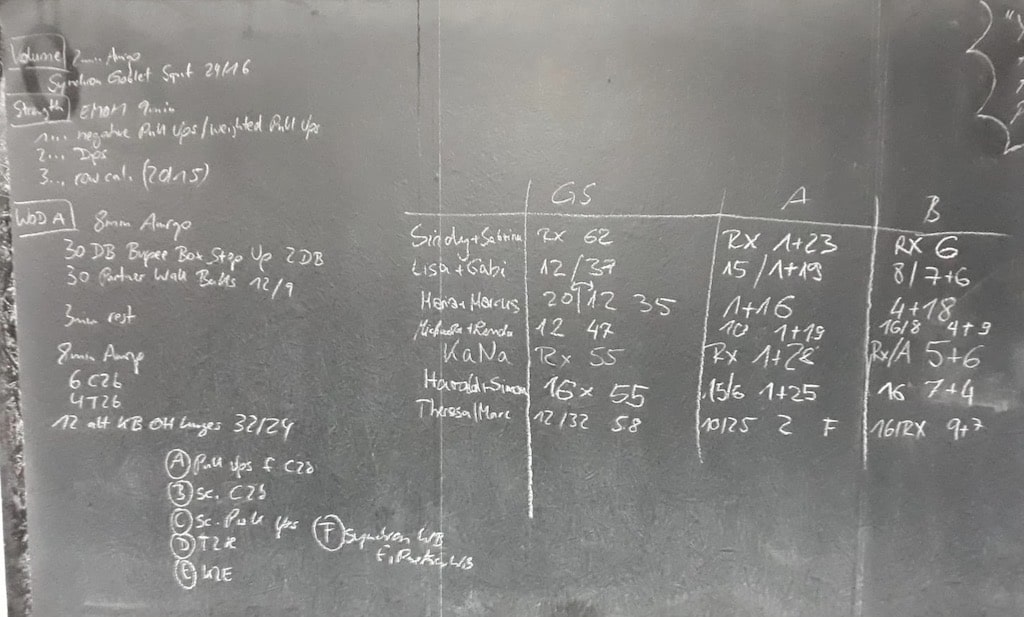 Volume 2min Amrap
Synchron Goblet Squat 24/16
Strength EMOM 9min
1... negative Pull Ups/weighted Pull Ups
2... Dips
3... row cal. (20/15)
WOD A 8min Amrap
30 DB Burpee Box Step Up 2DB
30 Partner Wall Balls 12/9
3min rest
8min Amrap
6 C2b
4 T2b
12 alt KB OH lunges 32/24
A Pull ups f C2b
B sc. C2b
C sc. Pull ups
D T2R
E K2E
F Synchron WB
f. Partner WB
GS A B
Sindy+Sabrina RX 62 RX 1+23 RX 6
Lisa+Gabi 12/37 15/1+19 8/7+6
Hana+Marcus 20/12 35 1+16 4+18
12 47 10 1+19 16/8 4+9
KaNa Rx 55 Rx 1+28 Rx/A 5+6
Harald+Simon 16x 55 15/6 1+25 16 7+4
Theresa/Marc 12/32 58 10/25 2 F 16/RX 9+7